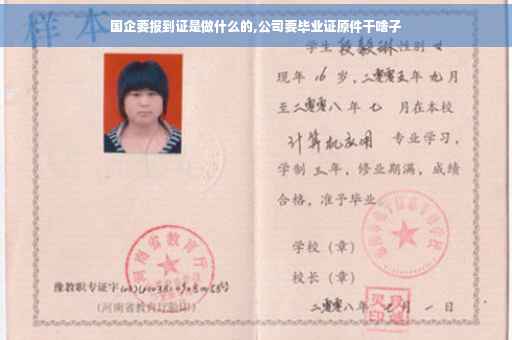 国企要报到证是做什么的,公司要毕业证原件干啥子
样本
学生 段毅琳 性别
现年 16 岁,二零零五年 九 月
至二零零八年 七 月在本校
计算机应用 专业学习,
学制 三 年,修业期满,成绩
合格,准予毕业
学校(章)
校长(章)
二零零八年 月 一 日
河南省教育厅
豫教职专证字
(河南省教育厅验印)